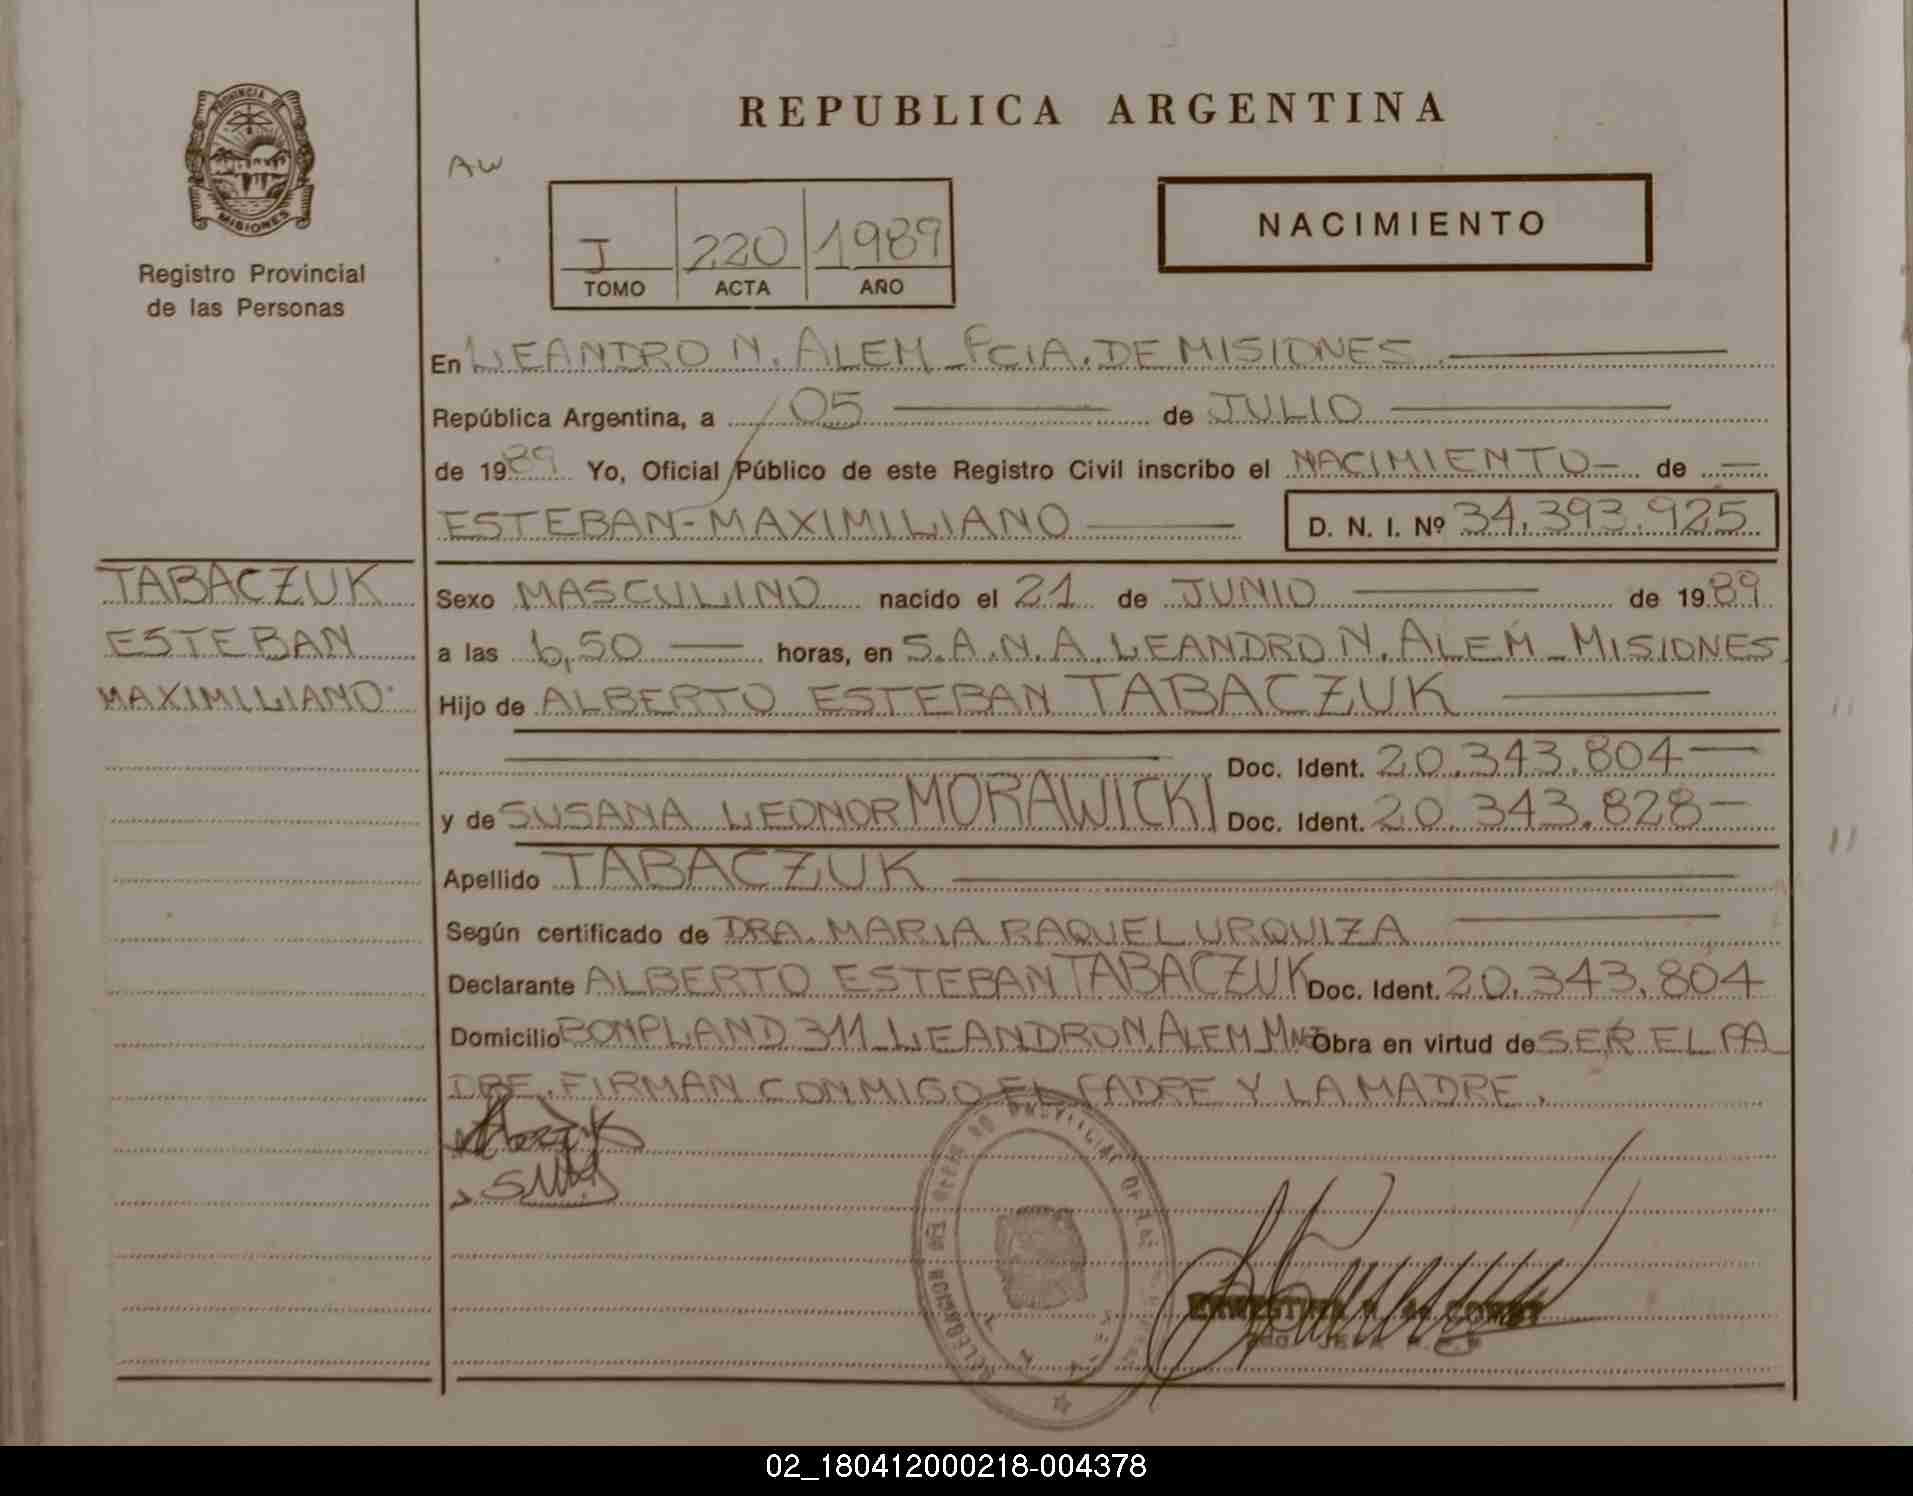 PROVINCIA DE
MISIONES
Registro Provincial
de las Personas
REPUBLICA ARGENTINA
AW
J 220 1989
TOMO ACTA AÑO
NACIMIENTO
En LEANDRO N. ALEM - PCIA. DE MISIONES.
República Argentina, a 05 de JULIO
de 1989 Yo, Oficial Público de este Registro Civil inscribo el NACIMIENTO - de -
ESTEBAN-MAXIMILIANO D. N. I. Nº 34.393.925
TABACZUK
ESTEBAN
MAXIMILIANO.
Sexo MASCULINO nacido el 21 de JUNIO de 1989
a las 6,50 horas, en S.A.N.A. LEANDRO N. ALEM - MISIONES
Hijo de ALBERTO ESTEBAN TABACZUK
Doc. Ident. 20.343.804
y de SUSANA LEONOR MORAWICKI Doc. Ident. 20.343.828
Apellido TABACZUK
Según certificado de DRA. MARIA RAQUEL URQUIZA
Declarante ALBERTO ESTEBAN TABACZUK Doc. Ident. 20.343.804
Domicilio BONPLAND 311 - LEANDRO N. ALEM Mnes Obra en virtud de SER EL PA
DRE. FIRMAN CONMIGO EL PADRE Y LA MADRE.
02_180412000218-004378